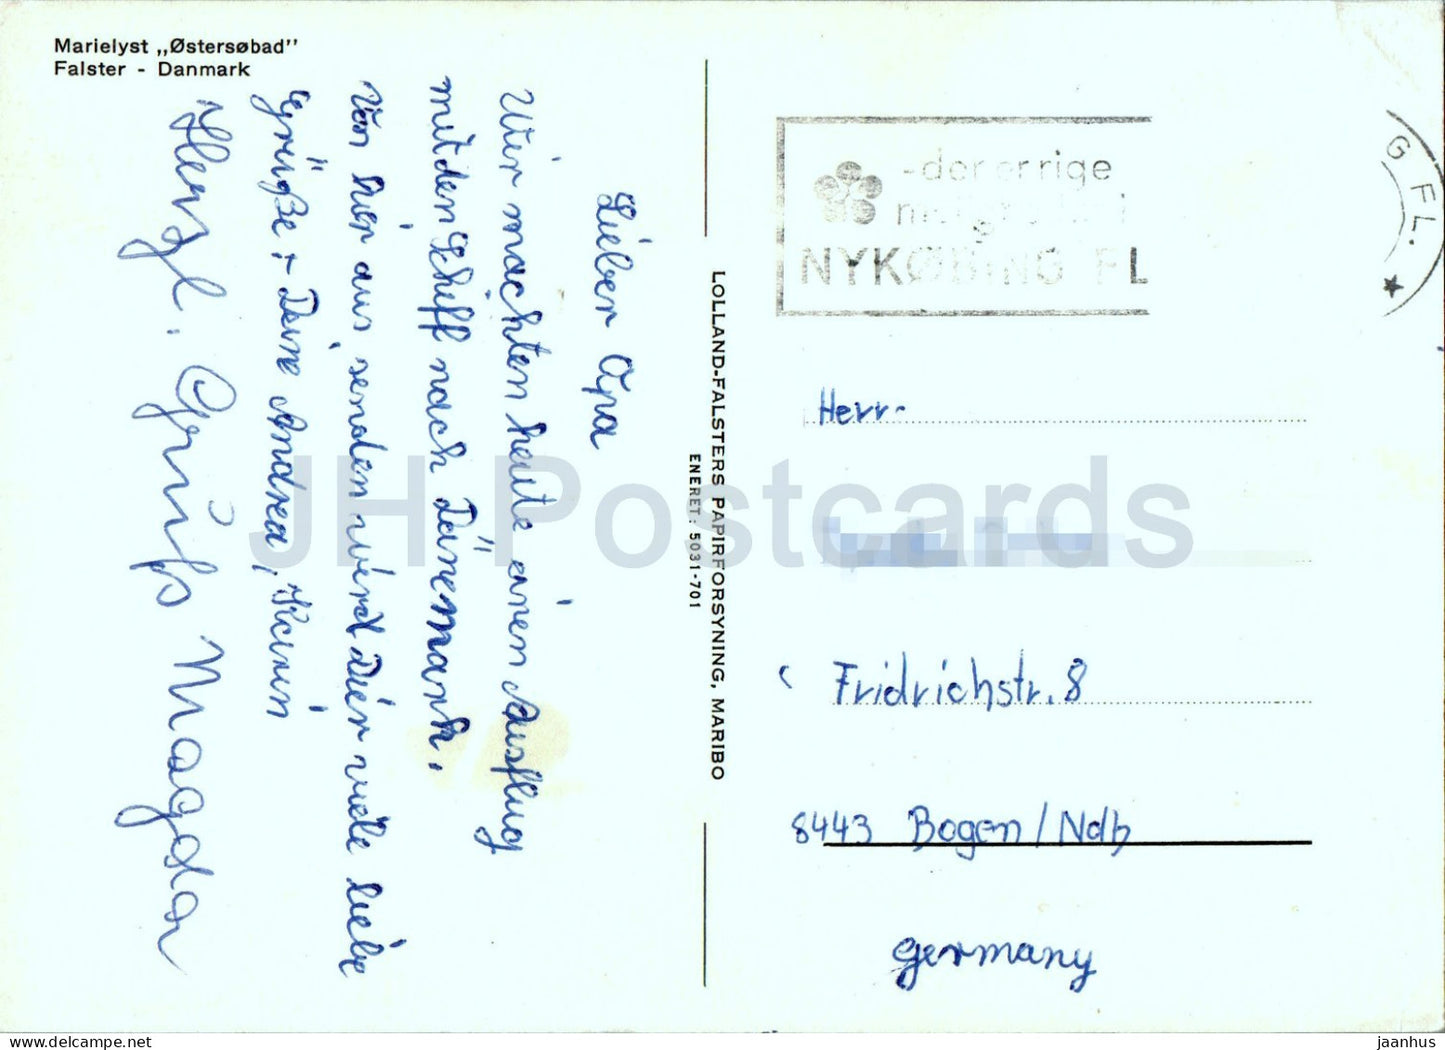 Marielyst „Østersøbad”
Falster - Danmark
Lieber Opa
Wir machten heute einen Ausflug
mit dem Schiff nach Dänemark,
Von hier aus senden wir Dir viele liebe
Grüße, Deine Andrea, Karin
Herzl. Grüße Magda
LOLLAND-FALSTERS PAPIRFORSYNING, MARIBO
ENERET: 5031-701
-der er rige
NYKØBING FL
G FL.
Herr.
Fridrichstr. 8
8443 Bogen/Ndb
Germany
JH Postcards
jaanhus